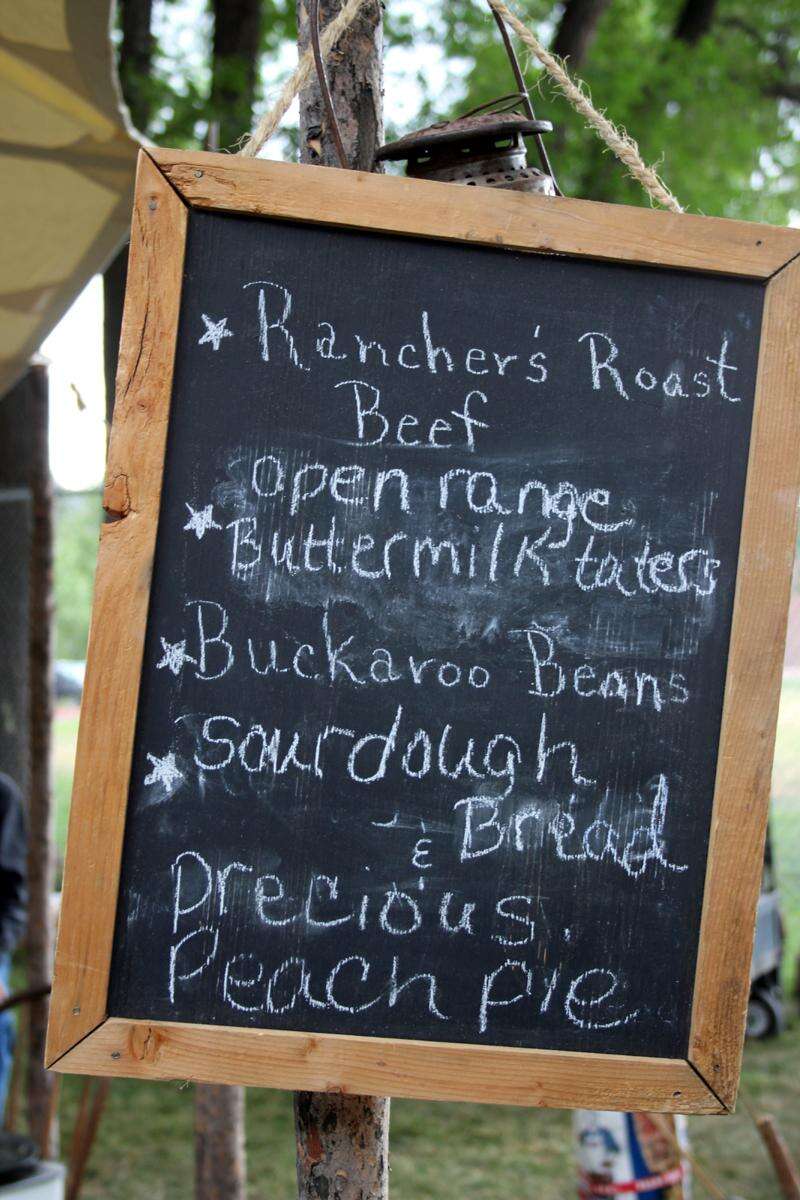 Rancher's Roast
Beef
open range
Buttermilk taters
Buckaroo Beans
sourdough
Bread
&
precious.
Peach pie